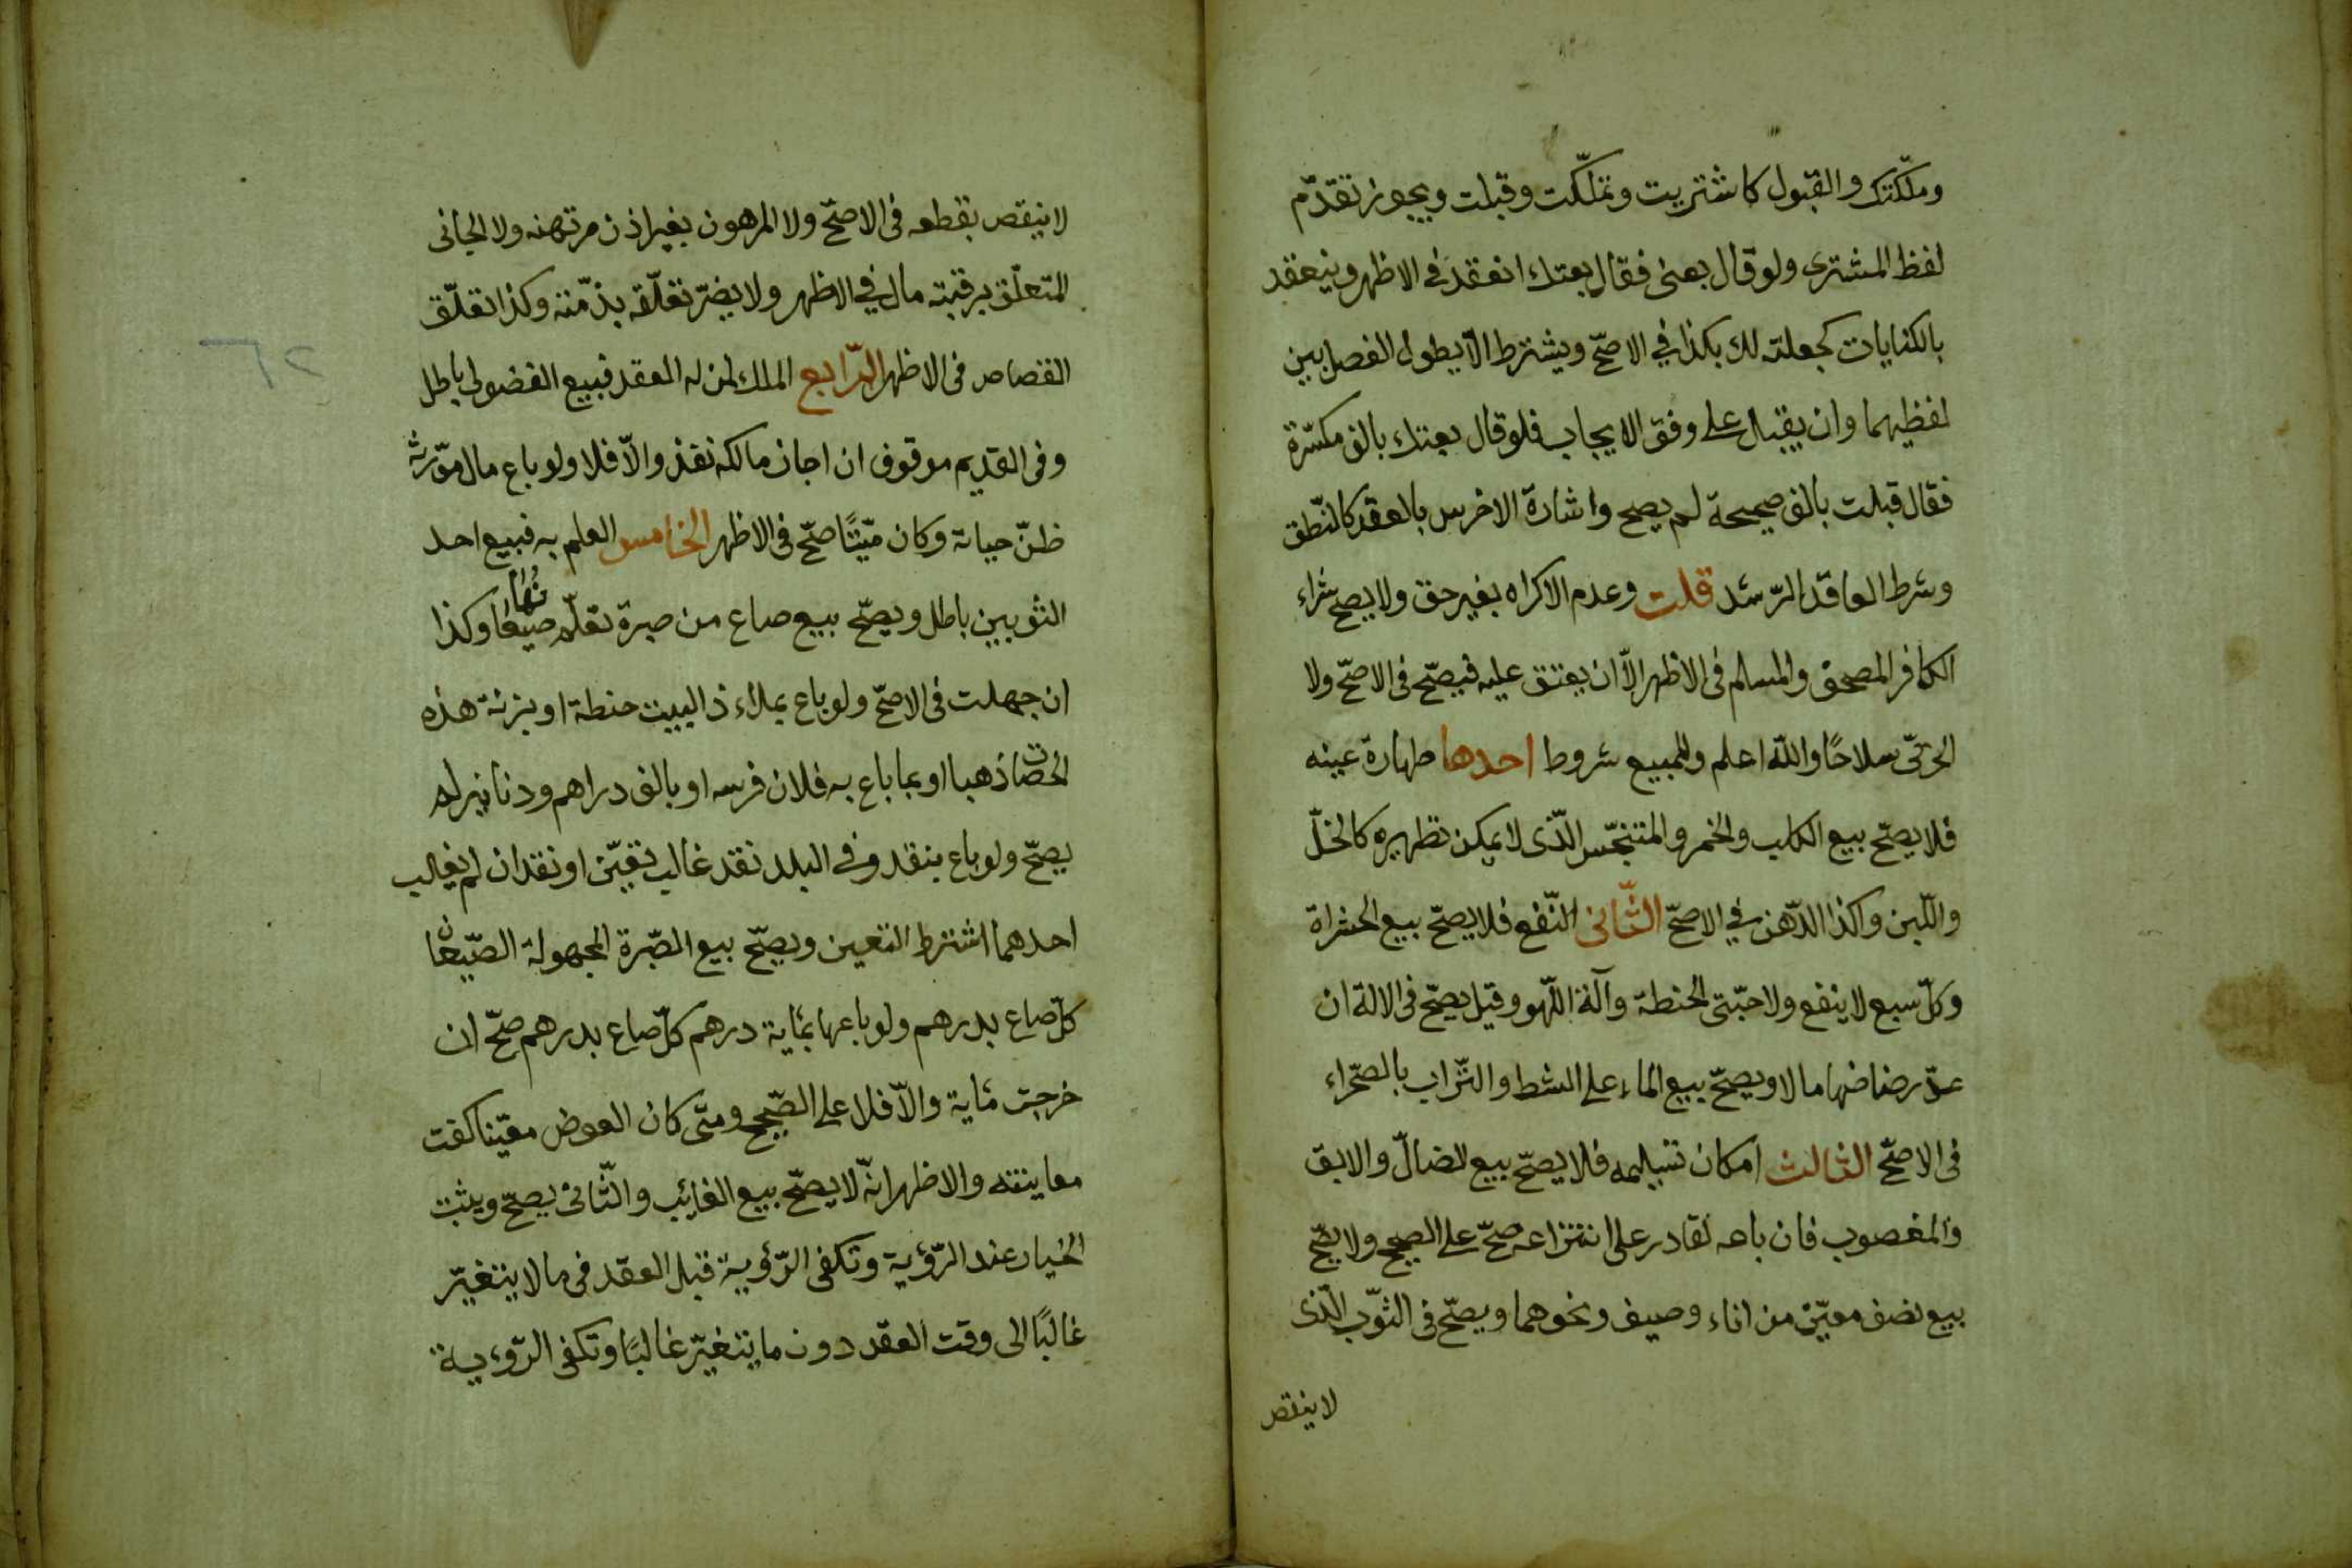 وملّكتك والقبول كاشتريت وتملّكت وقبلت ويجوز تقدّم
لفظ المشترى ولو قال بعنى فقال بعتك انعقد فى الاظهر وينعقد
بالكنايات كجعلته لك بكذا في الاصحّ ويشترط الّا يطول الفصل بين
لفظيهما وان يقبل على وفق الايجاب فلو قال بعتك بالف مكسّرة
فقال قبلت بالف صحيحة لم يصح واشارة الاخرس بالعقد كالنّطق
وشرط العاقد الرّشد قلت وعدم الاكراه بغير حق ولا يصحّ شراء
الكافر المصحف والمسلم فى الاظهر الّا ان يعتق عليه فيصحّ فى الاصحّ ولا
الحربّى سلاحًا واللّه اعلم وللمبيع شروط احدها طهارة عينه
فلا يصحّ بيع الكلب والخمر والمتنجّس الّذى لا يمكن تطهيره كالخلّ
واللّبن وكذا الدّهن في الاصحّ الثّانى النّفع فلا يصحّ بيع الحشراة
وكلّ سبع لا ينفع ولا حبّتى الحنطة وآلة اللّهو وقيل يصحّ فى الالة ان
عدّ رضاضها مالا ويصحّ بيع الماء على الشط والتّراب بالصّحراء
فى الاصحّ الثالث امكان تسليمه فلا يصحّ بيع الضالّ والابق
والمغصوب فان باعه لقادر على انتزاعه صحّ على الصحيح ولا يصحّ
بيع نصف معيّن من اناء وصيف ونحوهما ويصحّ فى الثوّب الّذى
لا ينقص
لا ينقص بقطعه فى الاصحّ ولا المرهون بغير اذن مرتهنه ولا الجانى
المتعلّق برقبته مال في الاظهر ولا يضرّ تعلّقه بذمّته وكذا تعلّق
القصاص فى الاظهر الرّابع الملك لمن له العقد فبيع الفضولى باطل
وفى القديم موقوف ان اجاز مالكه نفذ والّا فلا ولو باع مال مورّثه
ظنّ حياته وكان ميّتًا صحّ فى الاظهر الخامس العلم به فبيع احد
الثوبين باطل ويصحّ بيع صاع من صبرة تعلّم صيعانُها وكذا
ان جهلت فى الاصحّ ولو باع بملاء ذا البيت حنطة او بزنة هذه
الحصات ذهبا او بما باع به فلان فرسه او بالف دراهم ودنانير لم
يصحّ ولو باع بنقد وفى البلد نقد غالب تعيّن او نقدان لم يغلب
احدهما اشترط التعيين ويصحّ بيع الصّبرة المجهولة الصّيعان
كلّ صاع بدرهم ولو باعها بماية درهم كلّ صاع بدرهم صحّ ان
خرجت ماية والّا فلا على الصّحيح ومتّى كان العوض معيّنا كفت
معاينته والاظهر انّه لا يصحّ بيع الغايب والثّانى يصحّ ويثبت
الخيار عند الرّؤية وتكفى الرّؤية قبل العقد فى ما لا يتغيّر
غالبًا الى وقت العقد دون ما يتغيّر غالبًا وتكفى الرّؤية